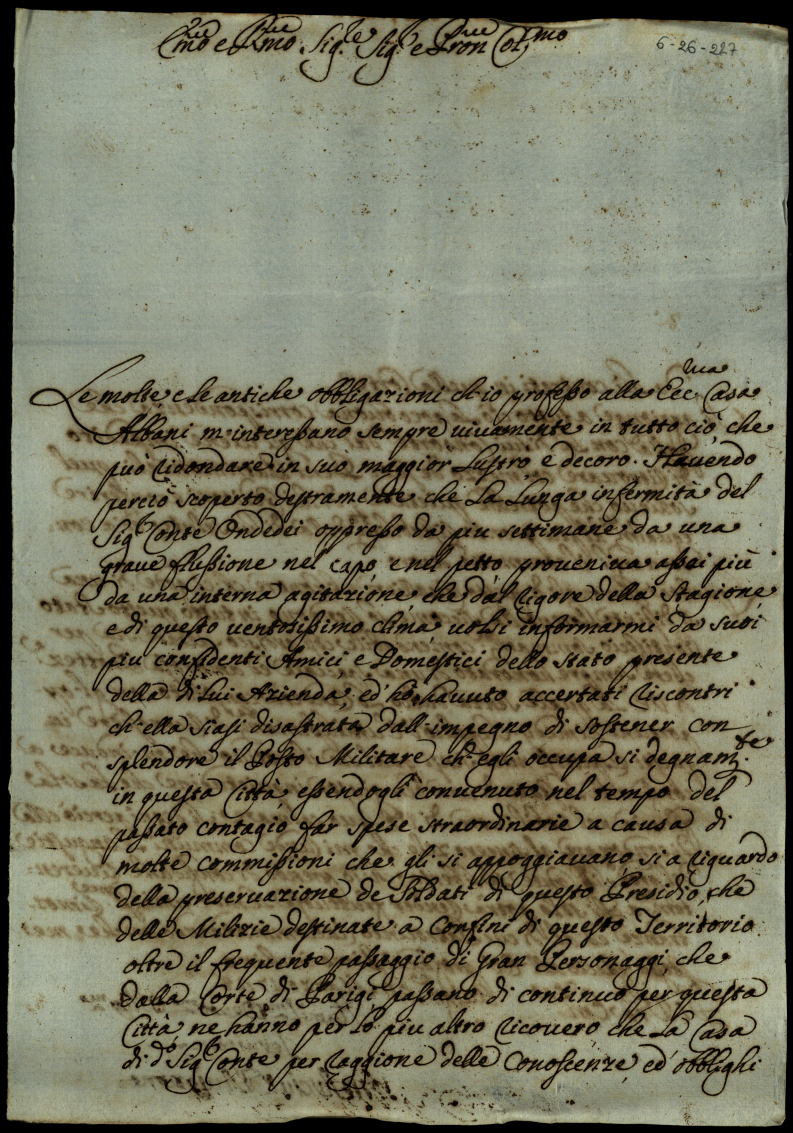 Em̃o e Rm̃o Sig.re Sig.re e Pron Col.mo
6-26-227
Le molte e le antiche obbligazioni ch'io professo alla Ecc.ma Casa
Albani m'interessano sempre vivamente in tutto ciò che
può ridondare in suo maggior lustro e decoro. Havendo
perciò scoperto destramente che la lunga infermità del
Sig.r Conte Ondedei oppresso da piu settimane da una
grave flussione nel capo e nel petto proveniva assai più
da una interna agitazione che dal rigore della stagione
e di questo ventosissimo clima, volsi informarmi da suoi
piu confidenti Amici e Domestici dello stato presente
della di lui Azienda, ed hò havuto accertati riscontri
ch'ella siasi disastrata dall'impegno di sostener con
splendore il Posto Militare ch'egli occupa sì degnam.te
in questa Città, essendogli convenuto nel tempo del
passato contagio far spese straordinarie a causa di
molte commissioni che gli si appoggiavano, sì a riguardo
della preservazione de Soldati di questo Presidio, che
delle Milizie destinate a Confini di questo Territorio
oltre il frequente passaggio di Gran Personaggi, che
dalla Corte di Parigi passano di continuo per questa
Città, ne hanno per lo piu altro ricovero che la Casa
di d.o Sig.r Conte per raggione delle conoscenze, ed obblighi